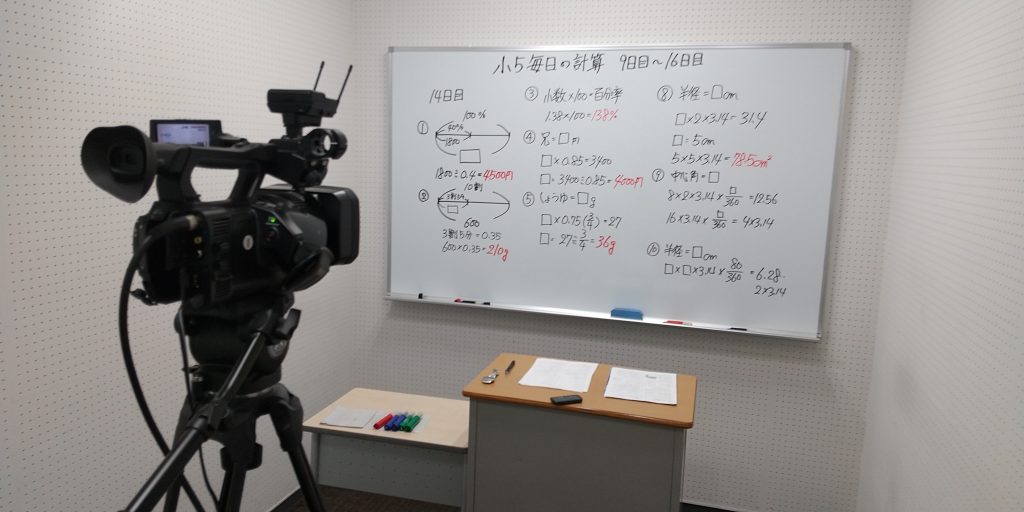 小5毎日の計算 9日目〜16日目
14日目
①
100%
40%
1800
□
1800÷0.4=4500円
②
10割
3割5分
□
600
3割5分=0.35
600×0.35=210g
③ 小数×100=百分率
1.38×100=138%
④ 兄=□円
□×0.85=3400
□=3400÷0.85=4000円
⑤ しょうゆ=□g
□×0.75(3/4)=27
□=27÷3/4=36g
⑧ 半径=□cm
□×2×3.14=31.4
□=5cm
5×5×3.14=78.5cm²
⑨ 中心角=□
8×2×3.14×□/360=12.56
16×3.14×□/360=4×3.14
⑩ 半径=□cm
□×□×3.14×80/360=6.28
2×3.14